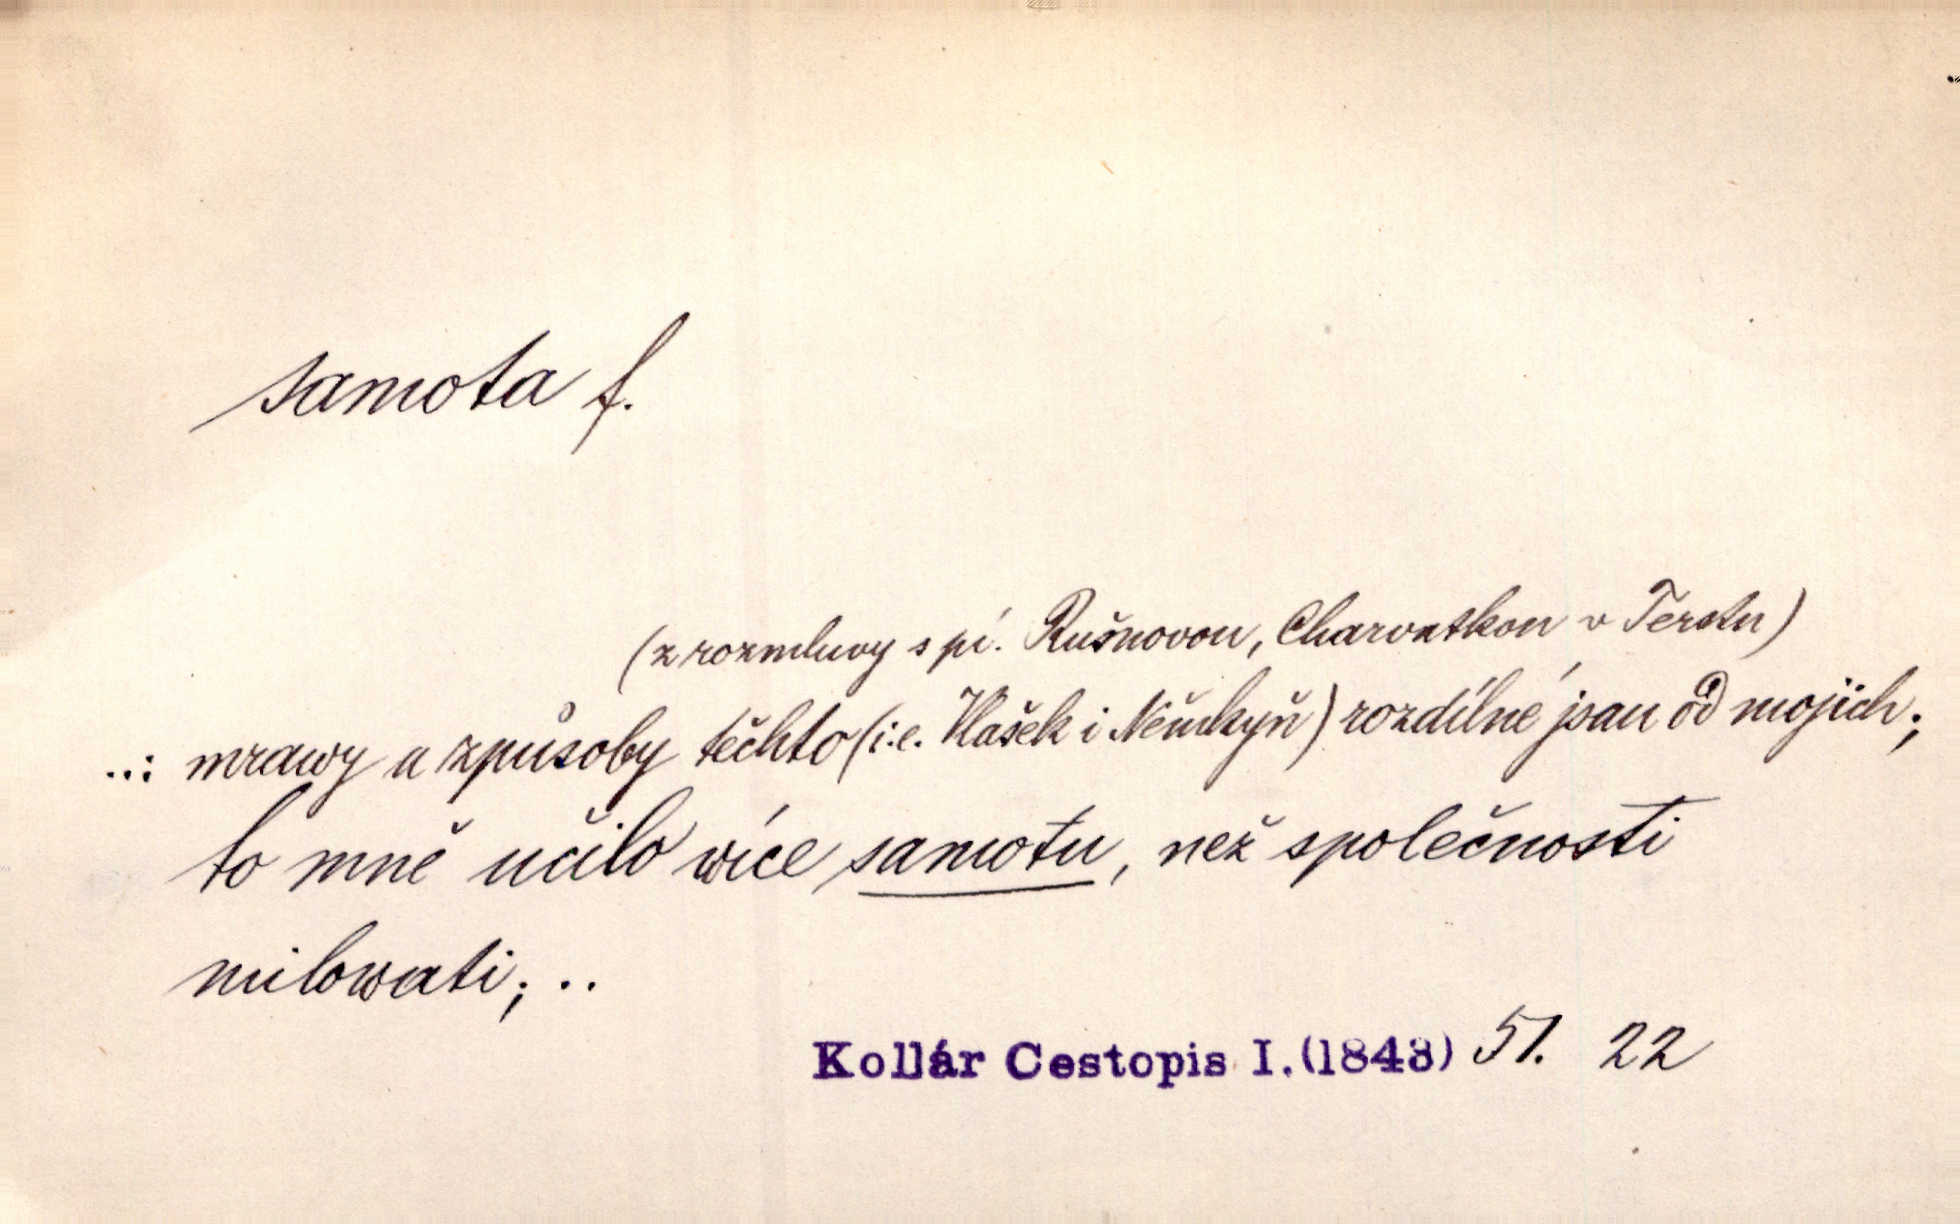 samota f.
(z rozmluvy s pí. Rušnovou, Charvatkou v Terstu)
..: mrawy a způsoby těchto (i.e. Vlašek i Němkyň) rozdílné jsau od mojich;
to mně učilo wíce samotu, než společnosti
milowati; ..
Kollár Cestopis I. (1843) 51. 22